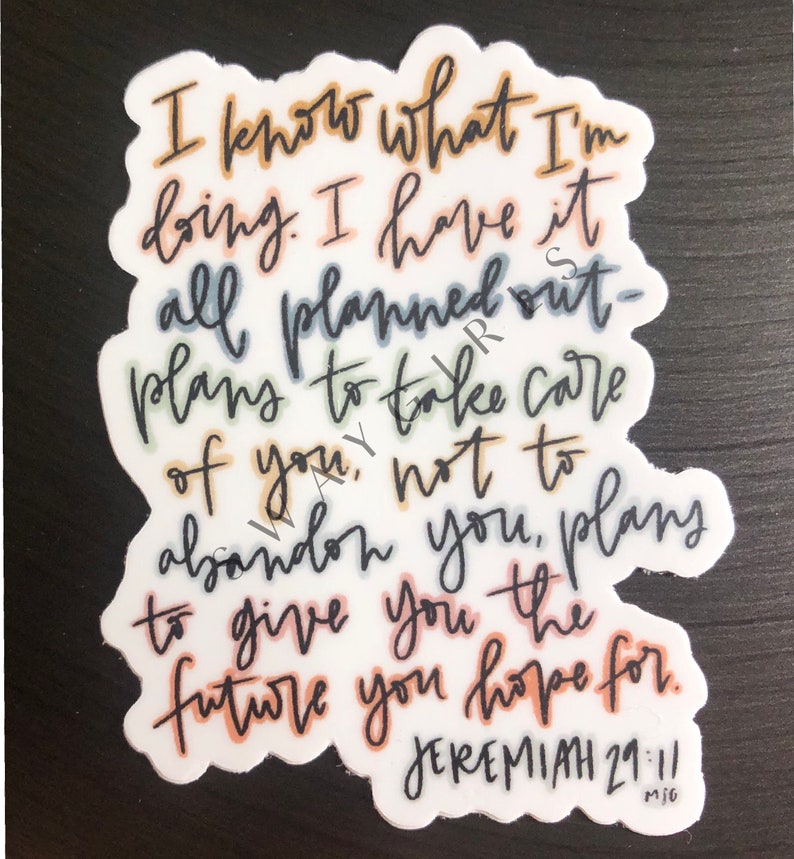 I know what I'm
doing. I have it
all planned out-
plans to take care
of you, not to
abandon you, plans
to give you the
future you hope for.
JEREMIAH 29:11
MSG
SWAYGIRLS